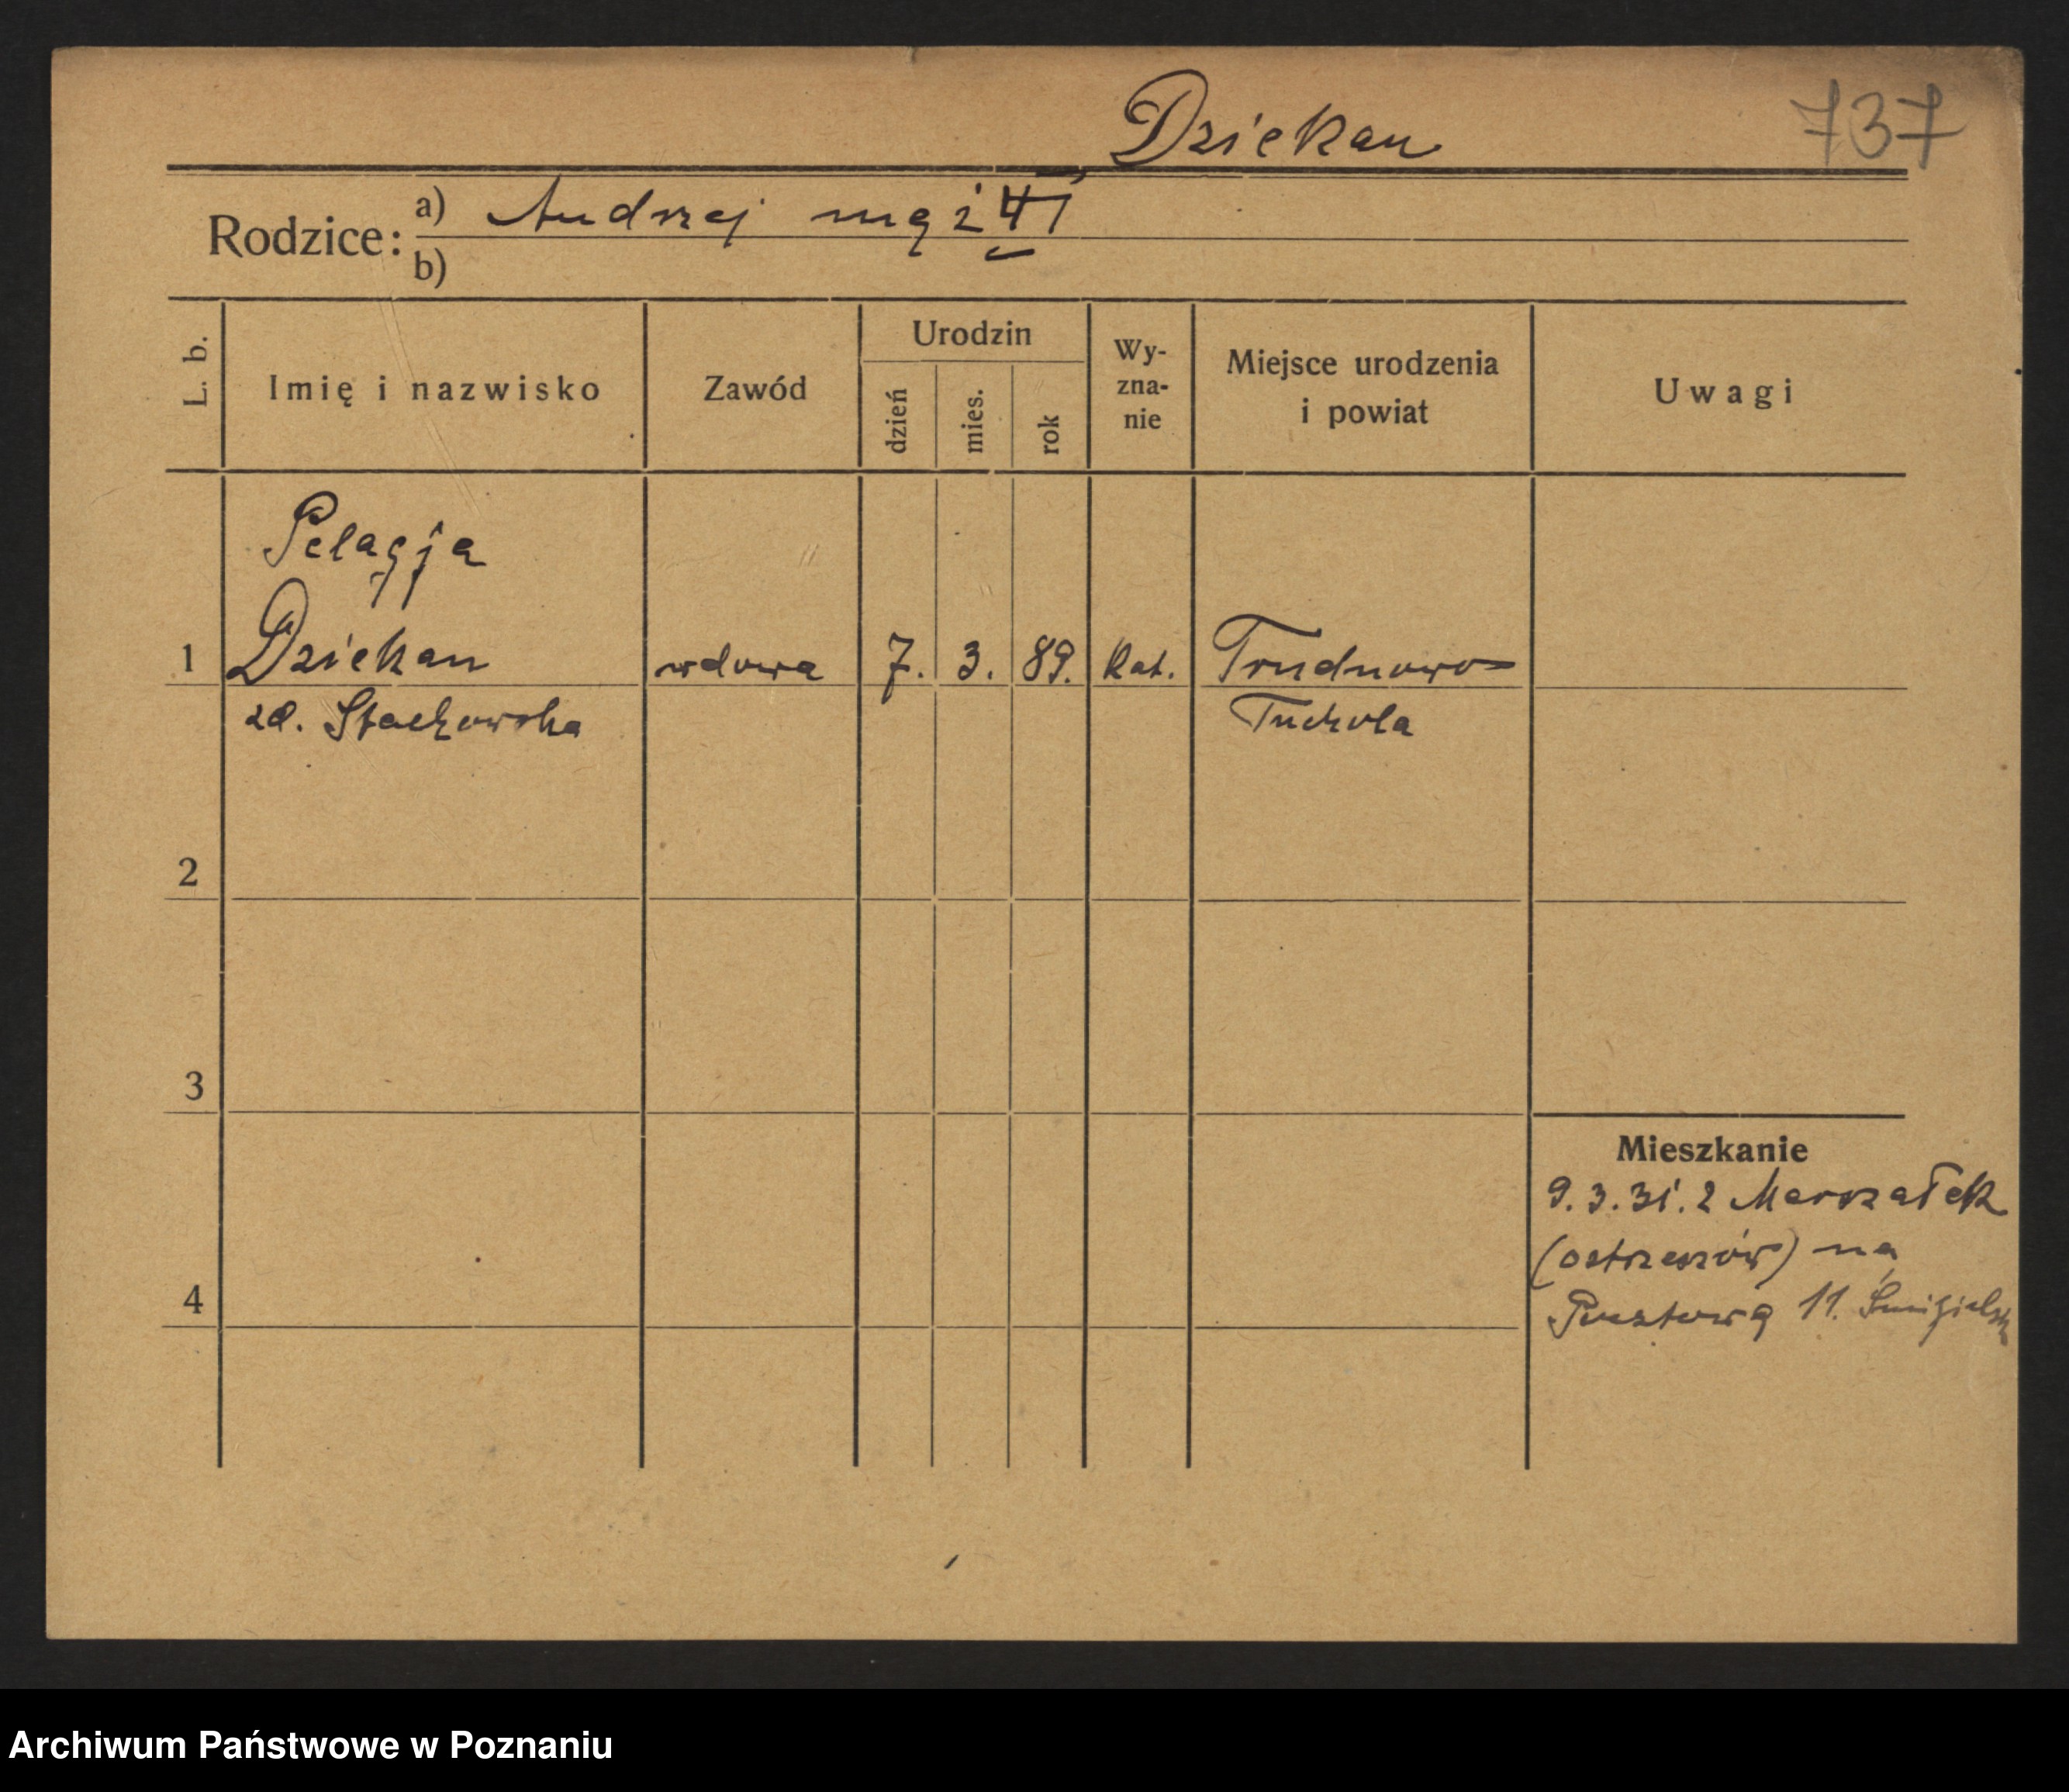 Dziekan 737
Rodzice: a) Andrzej mąż
b)
L. b. Imię i nazwisko Zawód Urodzin dzień mies. rok Wy-zna-nie Miejsce urodzenia i powiat Uwagi
Pelagja
1 Dziekan wdowa 7. 3. 89. kat. Trudnowo
zd. Stachowska Tuchola
2
3
Mieszkanie
9.3.31. z Marszałek
(Ostrzeszów) na
4 Pocztową 11.
Archiwum Państwowe w Poznaniu